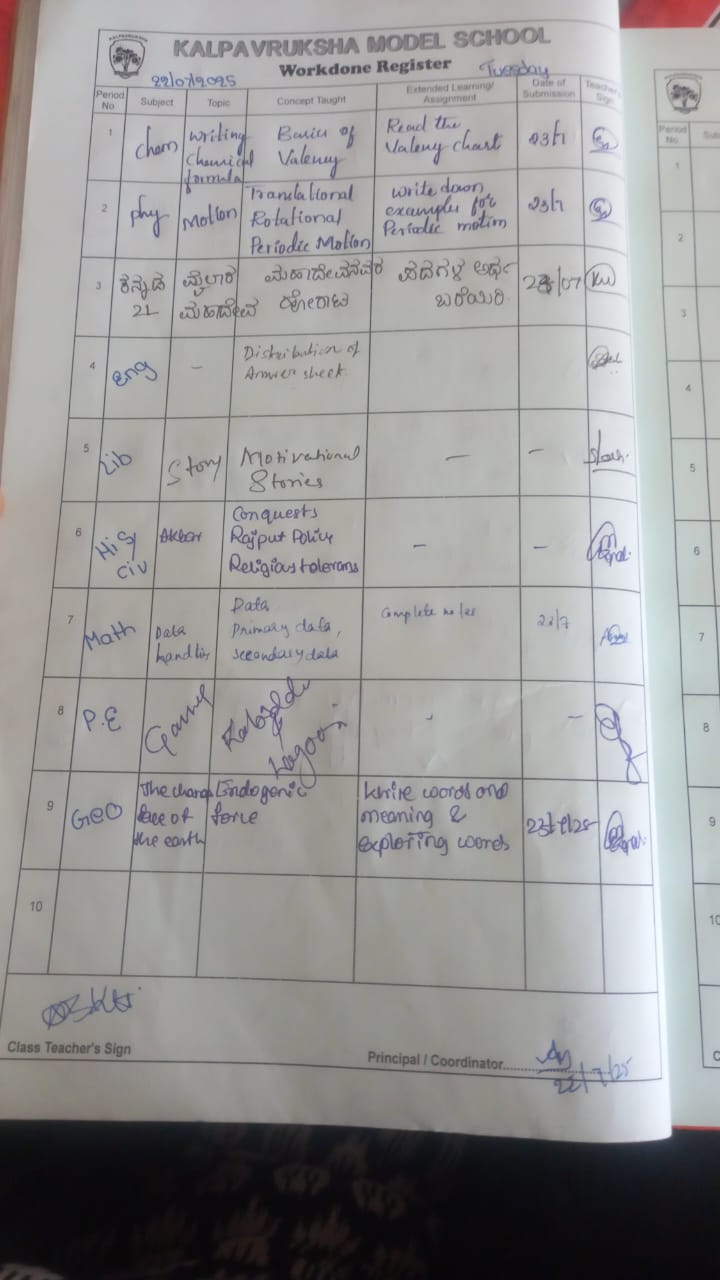 KALPAVRUKSHA MODEL SCHOOL
Workdone Register
22/07/2025 Tuesday
Period No Subject Topic Concept Taught Extended Learning/ Assignment Date of Submission Teacher's Sign
1 Chem Writing Chemical formula Basics of Valency Read the Valency chart 23/7
2 Phy Motion Translational Rotational Periodic Motion Write down examples for Periodic motion 23/7
3 ಕನ್ನಡ 21 ಮೈಲಾರ ಮಹಾದೇವ ಮಹಾದೇವನವರ ಹೋರಾಟ ಪದಗಳ ಅರ್ಥ ಬರೆಯಿರಿ. /07
4 Eng - Distribution of Answer sheet.
5 Lib Story Motivational Stories - -
6 His/ Civ Akbar Conquests Rajput Policy Religious tolerans - -
7 Math Data handling Data Primary data, secondary data Complete notes 22/7
8 P.E Game Kabaddi & Lagoori - -
9 Geo The chang face of the earth Endogenic force words and meaning & exploring words
10
Class Teacher's Sign
Principal / Coordinator..........
22/7/25
Period No.
1
2
3
4
5
6
7
8
9
10